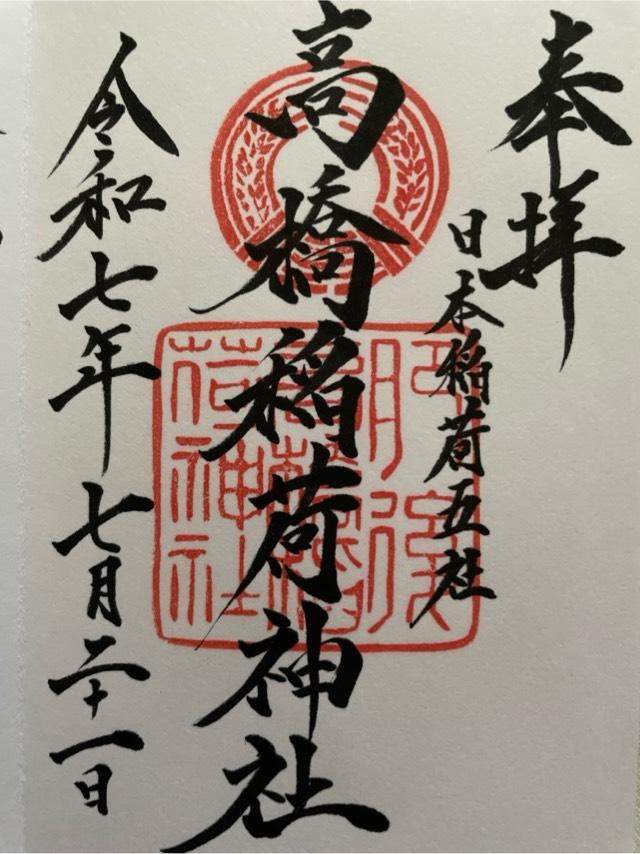 奉拝
日本稲荷五社
高橋稲荷神社
令和七年七月二十一日